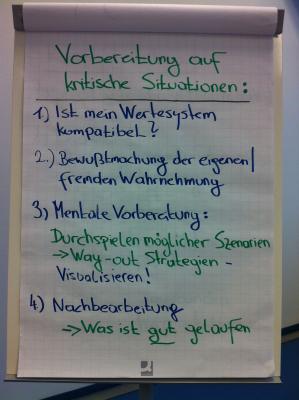 Vorbereitung auf
kritische Situationen:
1) Ist mein Wertesystem
kompatibel?
2.) Bewußtmachung der eigenen/
fremden Wahrnehmung
3) Mentale Vorberatung:
Durchspielen möglicher Szenarien
→ Way-out Strategien -
Visualisieren!
4) Nachbearbeitung
→ Was ist gut gelaufen